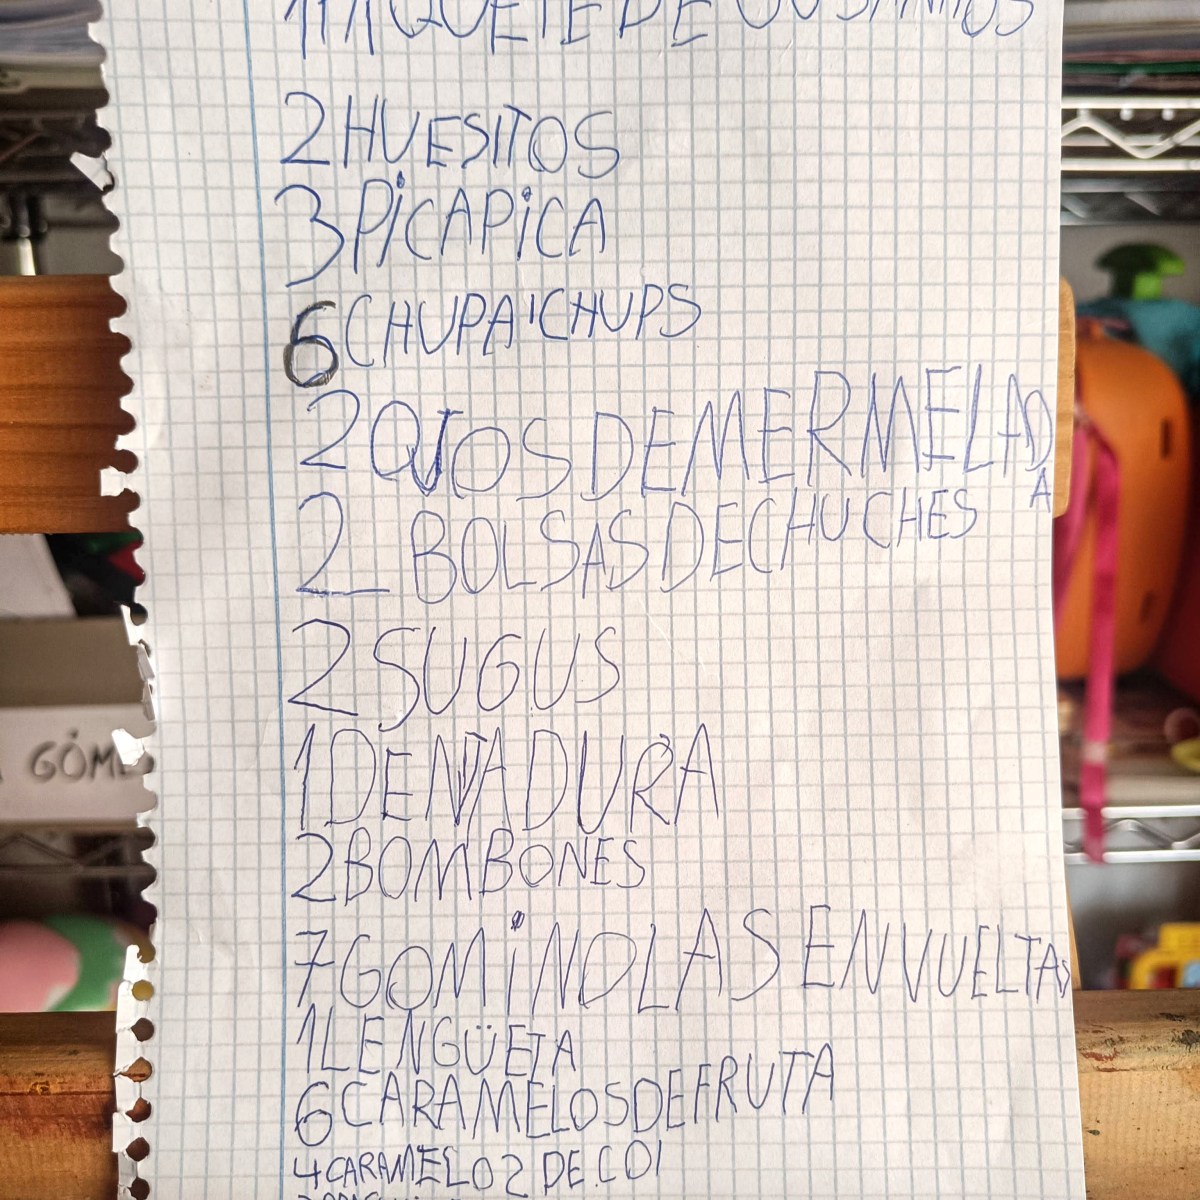 1 PAQUETE DE GUSANITOS
2 HUESITOS
3 PICAPICA
6 CHUPA'CHUPS
2 OJOS DE MERMELADA
2 BOLSAS DE CHUCHES
2 SUGUS
1 DENTADURA
GÓME
2 BOMBONES
7 GOMINOLAS ENVUELTAS
1 LENGÜETA
6 CARAMELOS DE FRUTA
4 CARAMELOS DE COI